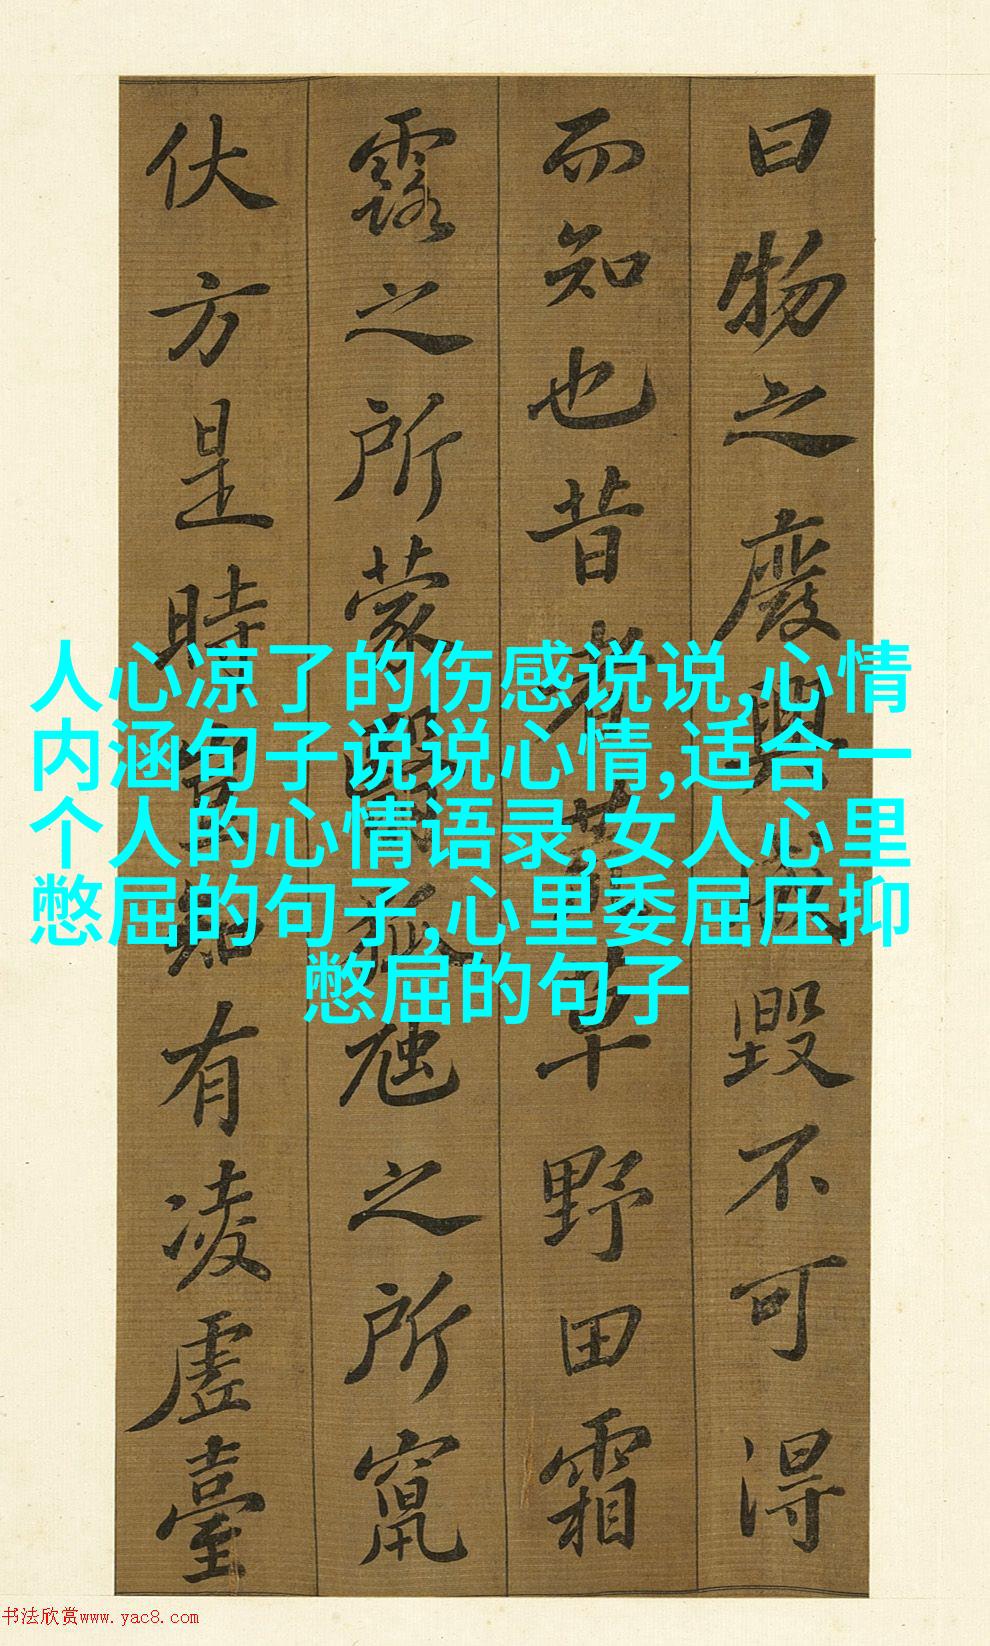 曰物之廢興成毀不可得
而知也昔者荒草野田霜
露之所蒙翳狐虺之所竄
伏方是時豈知有凌虛臺
人心凉了的伤感说说,心情
内涵句子说说心情,适合一
个人的心情语录,女人心里
憋屈的句子,心里委屈压抑
憋屈的句子
书法欣赏www.yac8.com